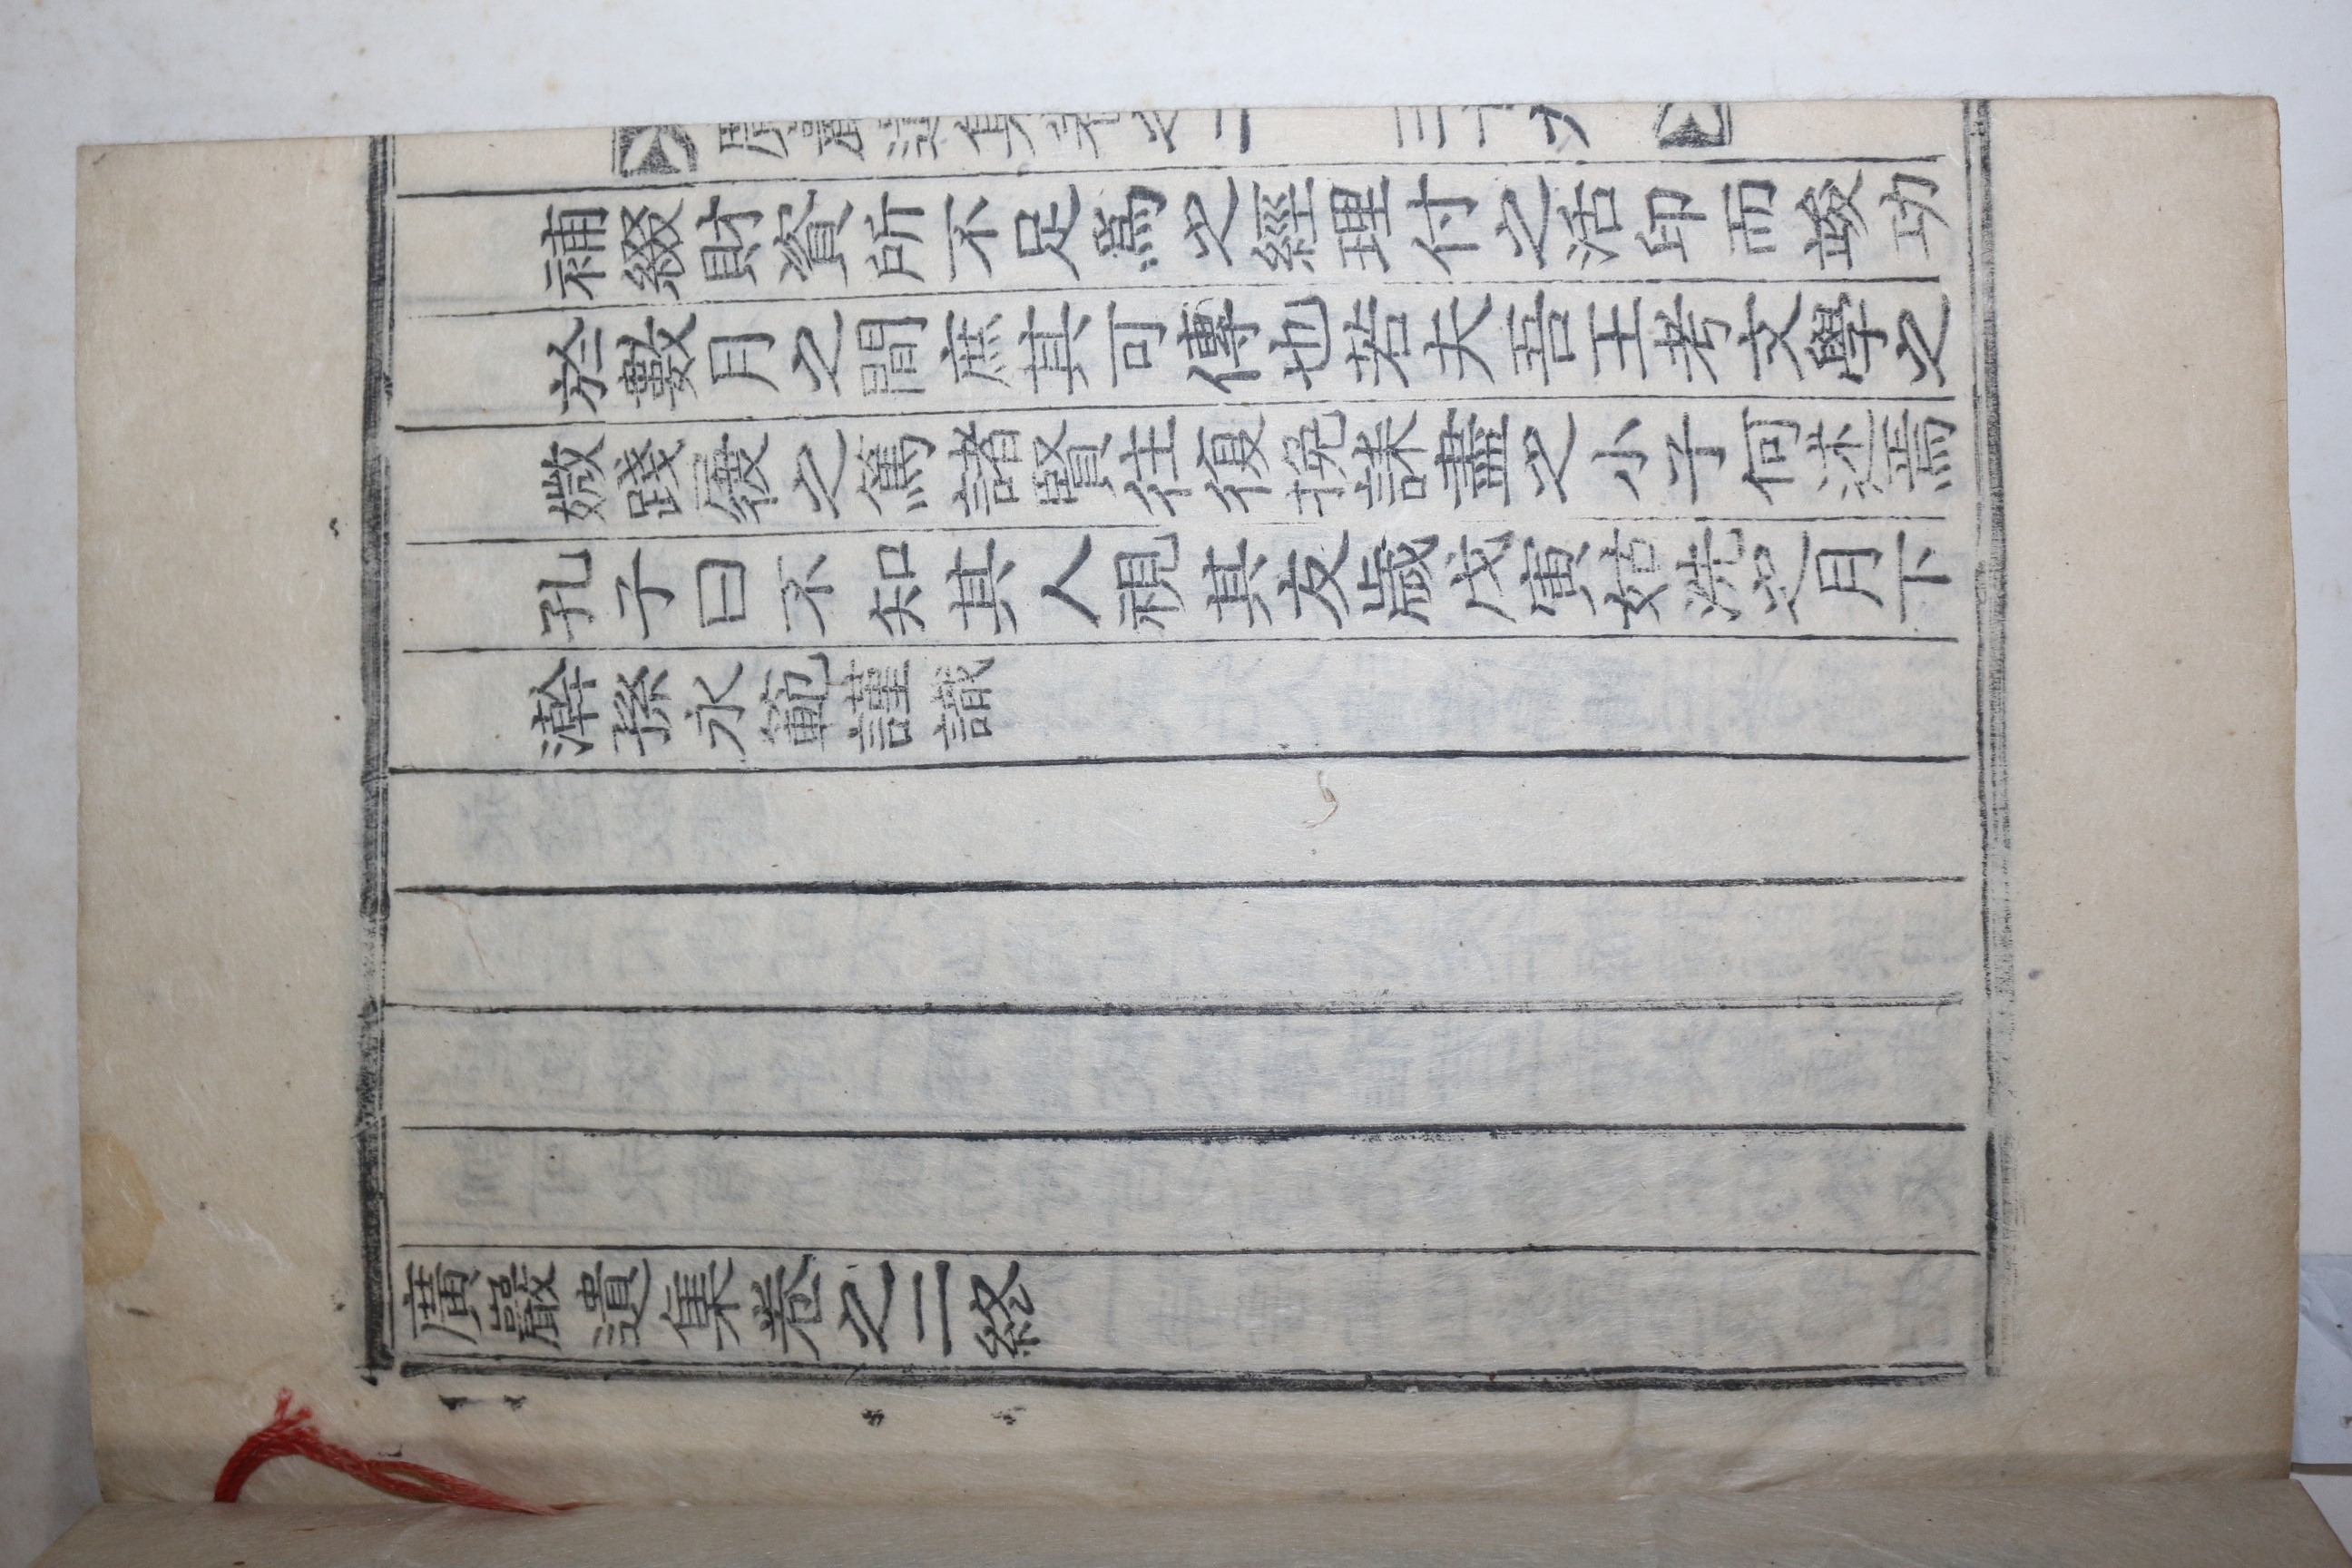 廣巖遺集卷之二 三十九
補綴財資所不足爲之經理付之活印而竣功
於數月之間庶其可傳也若夫吾王考文學之
媺踐履之篤諸賢往復挽誄盡之小子何述焉
孔子曰不知其人視其友歲戊寅姑洗之月下
澣孫永範謹識
廣巖遺集卷之二終